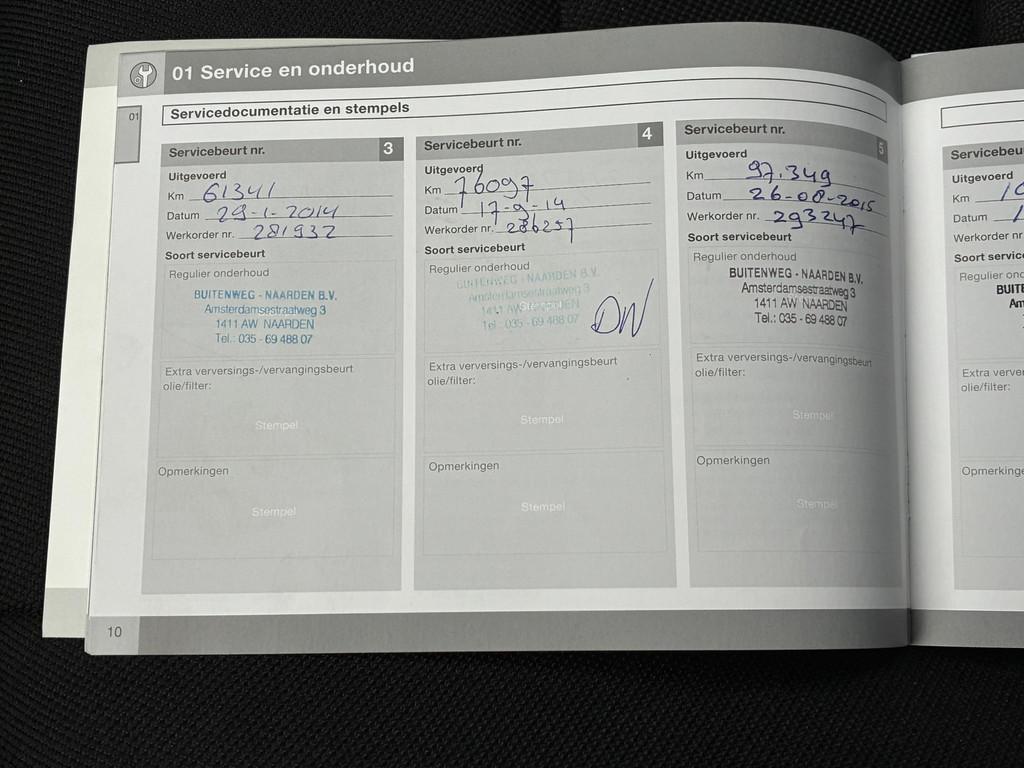 01 Service en onderhoud
01
Servicedocumentatie en stempels
Servicebeurt nr. 3
Uitgevoerd
Km 61341
Datum 29-1-2014
Werkorder nr. 281932
Soort servicebeurt
Regulier onderhoud
BUITENWEG - NAARDEN B.V.
Amsterdamsestraatweg 3
1411 AW NAARDEN
Tel.: 035 - 69 488 07
Extra verversings-/vervangingsbeurt
olie/filter:
Stempel
Opmerkingen
Stempel
Servicebeurt nr. 4
Uitgevoerd
Km 76097
Datum 17-9-14
Werkorder nr. 286257
Soort servicebeurt
Regulier onderhoud
BUITENWEG - NAARDEN B.V.
Amsterdamsestraatweg 3
1411 AW NAARDEN
Tel.: 035 - 69 488 07
DW
Extra verversings-/vervangingsbeurt
olie/filter:
Stempel
Opmerkingen
Stempel
Servicebeurt nr. 5
Uitgevoerd
Km 97.349
Datum 26-08-2015
Werkorder nr. 293247
Soort servicebeurt
Regulier onderhoud
BUITENWEG - NAARDEN B.V.
Amsterdamsestraatweg 3
1411 AW NAARDEN
Tel.: 035 - 69 488 07
Extra verversings-/vervangingsbeurt
olie/filter:
Stempel
Opmerkingen
Stempel
10
Servicebeu
Uitgevoerd
Km
Datum
Werkorder nr
Soort servic
Regulier ond
BUIT
Extra verve
olie/filter:
Opmerkinge